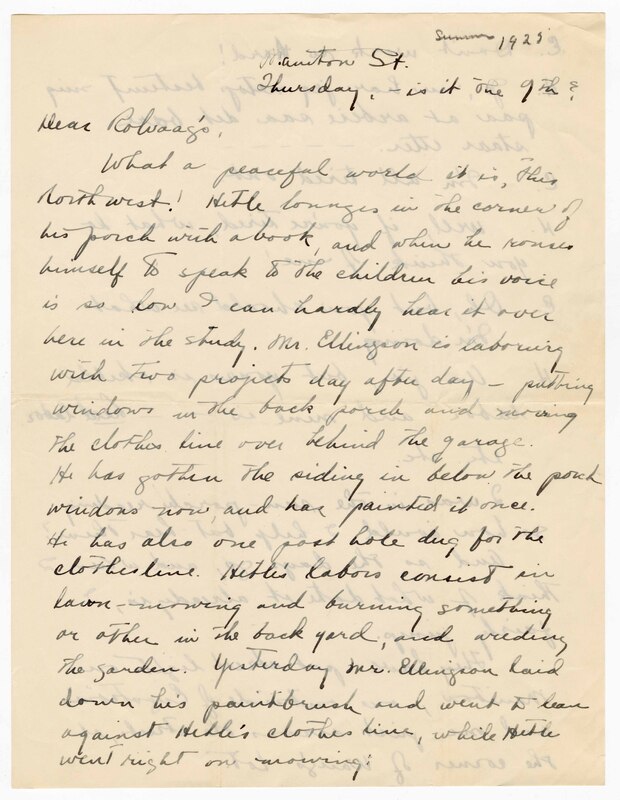 Summer 1925
Manitou St.
Thursday, - is it the 9th?
Dear Rolvaags,
What a peaceful world it is, this
Northwest! Hetle lounges in the corner of
his porch with a book, and when he rouses
himself to speak to the children his voice
is so low I can hardly hear it over
here in the study. Mr. Ellingson is laboring
with two projects day after day - putting
windows in the back porch and moving
the clothes line over behind the garage.
He has gotten the siding in below the porch
windows now, and has painted it once.
He has also one post hole dug for the
clothesline. Hetle's labors consist in
lawn-mowing and burning something
or other in the back yard, and weeding
the garden. Yesterday Mr. Ellingson laid
down his paintbrush and went to lean
against Hetle's clothes line, while Hetle
went right on mowing;